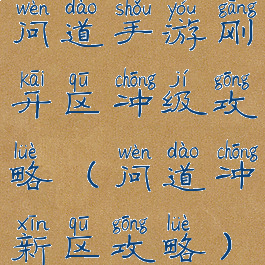 wèn dào shǒu yóu gāng
问道手游刚
kāi qū chōng jí gōng
开区冲级攻
lüè wèn dào chōng
略（问道冲
xīn qū gōng lüè
新区攻略）